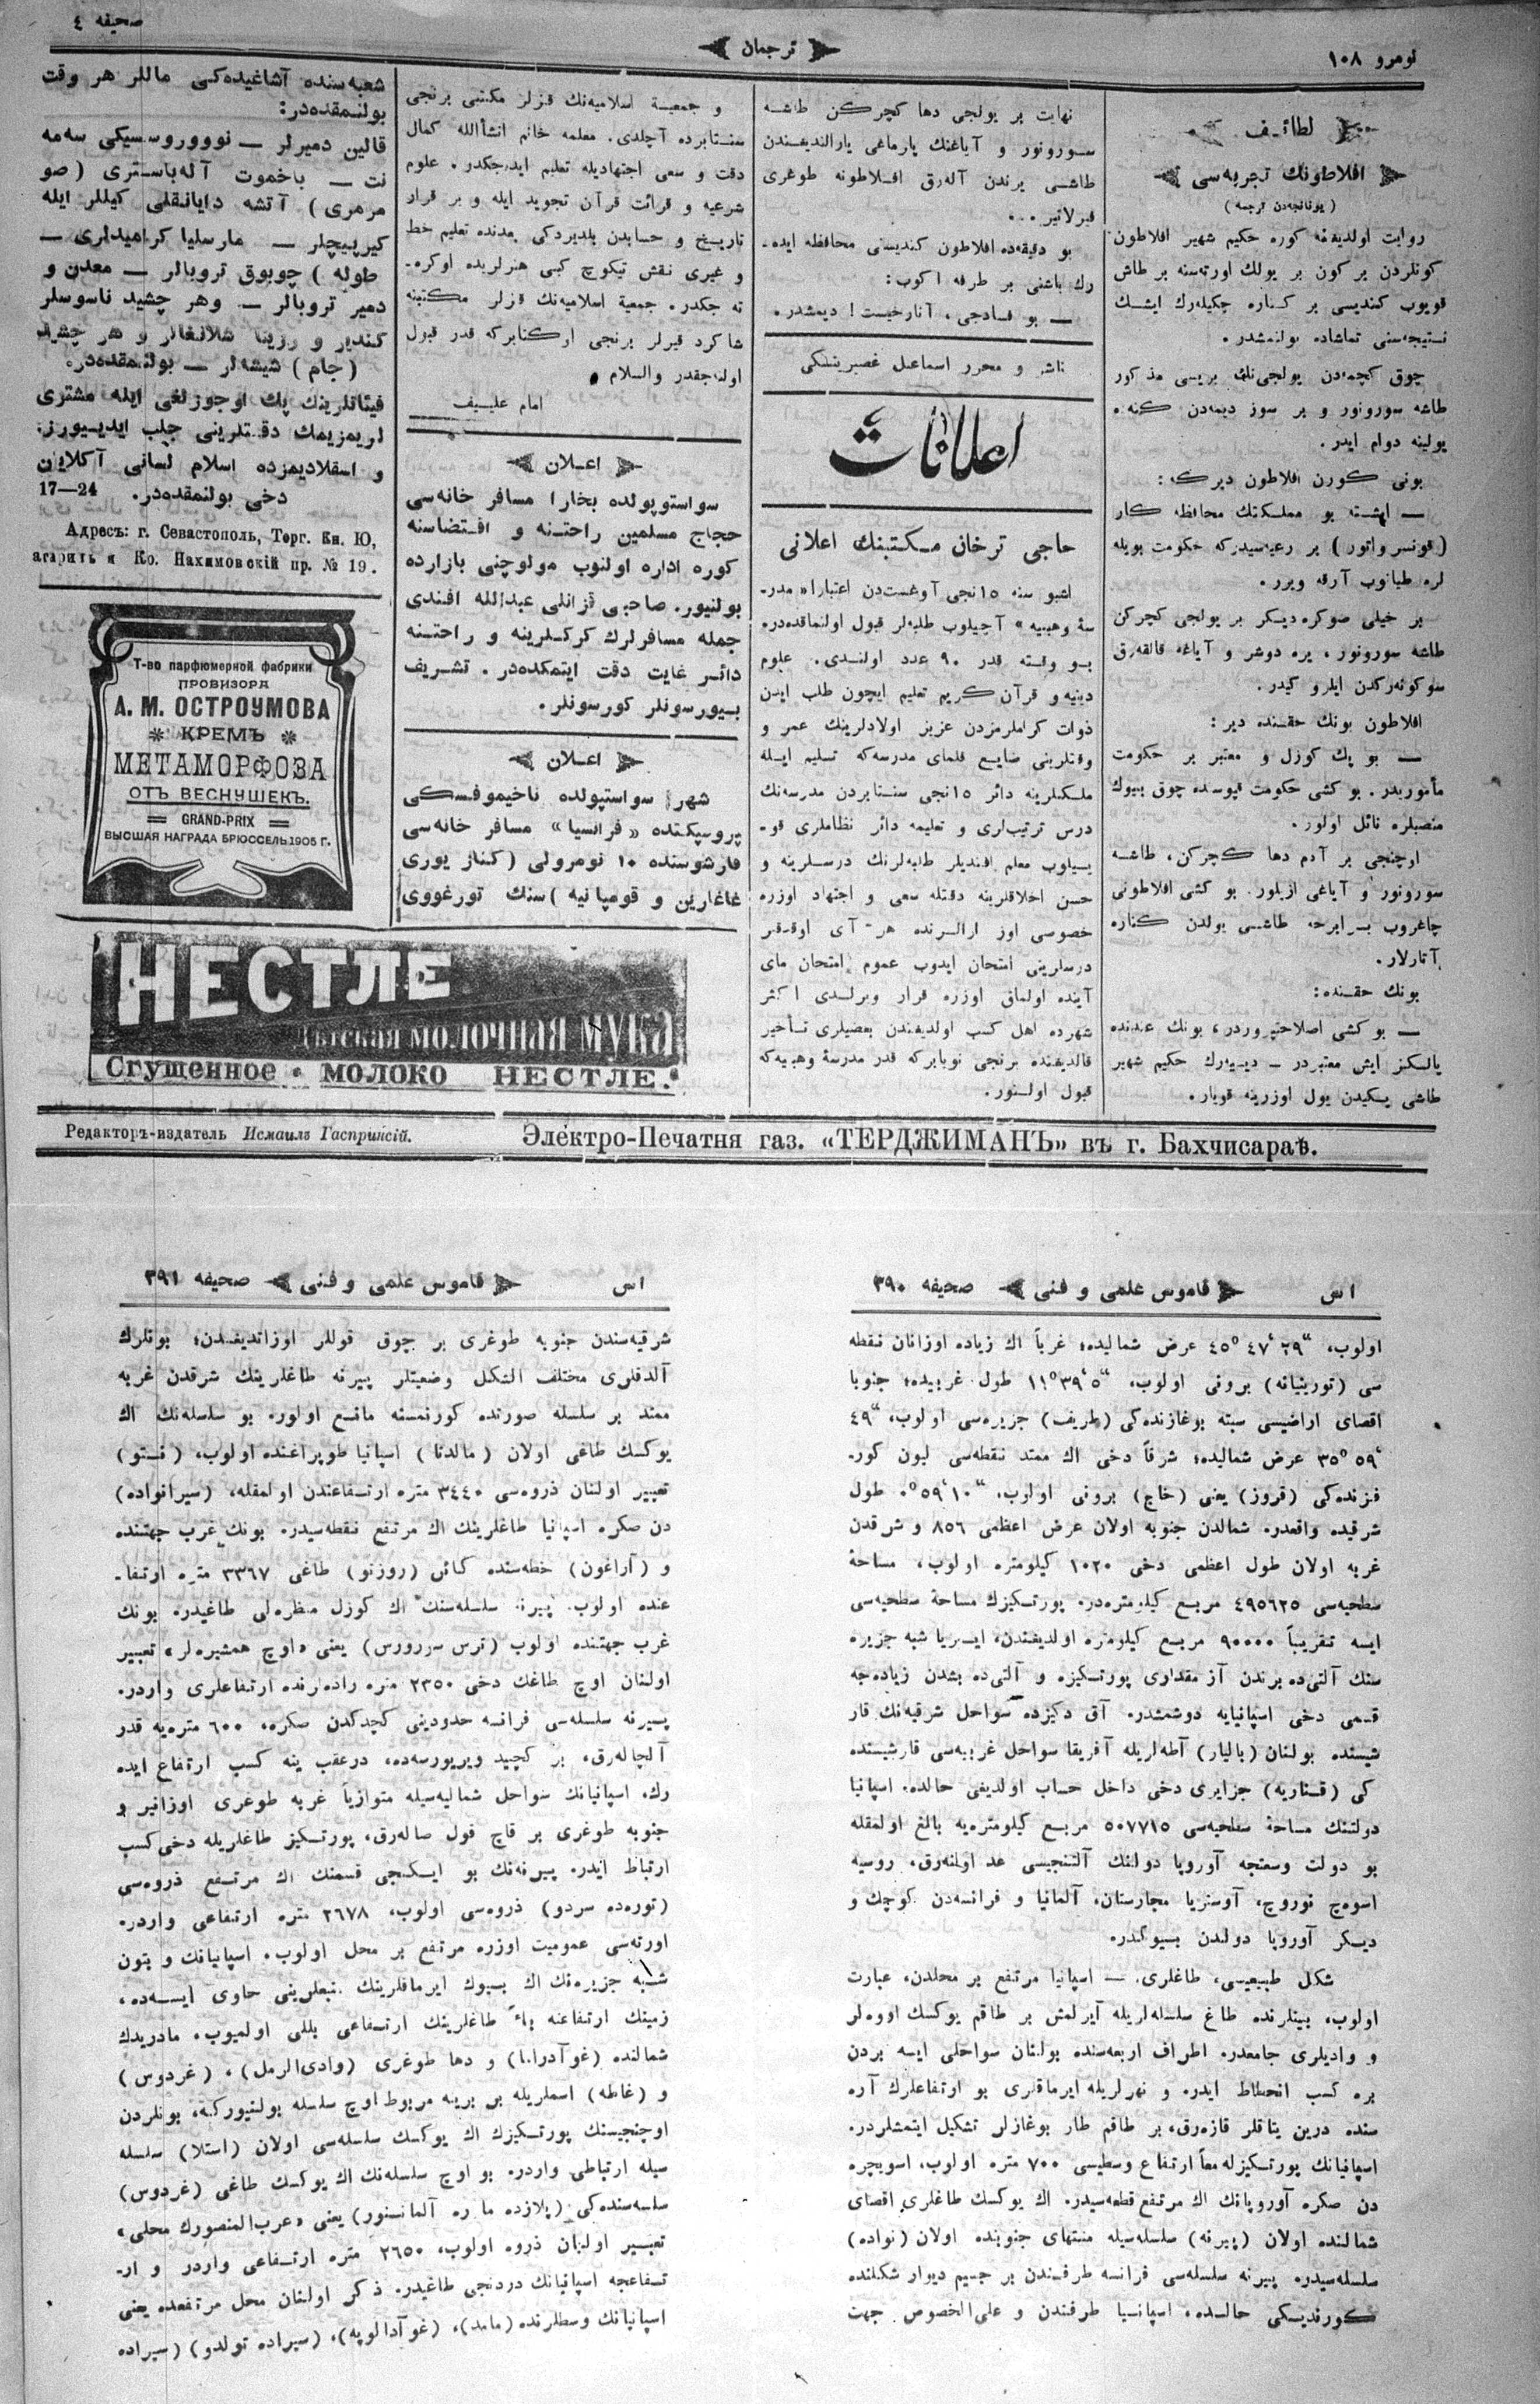 نومرو ١٠٨
ترجمان
صحیفه ٤
لطائف
افلاطونك تجربه‌سی
(یونانجه‌دن ترجمه)
روایت اولدیغنه کوره حکیم شهیر افلاطون
کونلردن بر کون بر یولك اورته‌سنه بر طاش
قویوب کندیسی بر کناره چکیله‌رك ایشك
نتیجه‌سنی تماشاده بولنمشدر.
چوق کچمه‌دن یولجی‌نك بریسی مذکور
طاشه سورونور و بر سوز دیمه‌دن کنه
یولینه دوام ایدر.
بونی کورن افلاطون دیرکه:
— ایشته بو مملکتك محافظه کار
(قونسرواتور) بر رعیه‌سیدرکه حکومت بویله
لره طیانوب آرقه ویرر.
بر خیلی صوکره دیکر بر یولجی کچرکن
طاشه سورونور، یره دوشر و آیاغه قالقه‌رق
سوکونه‌رکدن ایلرو کیدر.
افلاطون بونك حقنده دیر:
— بو پك کوزل و معتبر بر حکومت
مأموریدر. بو کشی حکومت قپوسنده چوق بیوك
منصبلره نائل اولور.
اوچنجی بر آدم دها کچرکن، طاشه
سورونور و آیاغی ازیلور. بو کشی افلاطونی
چاغروب برابرجه طاشی یولدن کناره
آتارلار.
بونك حقنده:
— بو کشی اصلاحتپروردر، بونك عندنده
یالکز ایش معتبردر — دیه‌رك حکیم شهیر
طاشی یکیدن یول اوزرینه قویار.
نهایت بر یولجی دها کچرکن طاشه
سورونور و آیاغنك پارماغی یارالندیغندن
طاشی یرندن آله‌رق افلاطونه طوغری
فیرلاتیر...
بو دقیقه‌ده افلاطون کندیسنی محافظه ایده‌-
رك باشنی بر طرفه اکوب:
— بو فسادجی، آنارخیست! دیمشدر.
ناشر و محرر اسماعیل غصپرینسکی
اعلانات
حاجی ترخان مکتبنك اعلانی
اشبو سنه ١٥ نجی آوغستدن اعتبارا «مدر-
سۀ وهبیه» آچیلوب طلبه‌لر قبول اولنماقده‌در.
بو وقته قدر ٩٠ عدد اولندی. علوم
دینیه و قرآن کریم تعلیم ایچون طلب ایدن
ذوات کراملرمزدن عزیز اولادلرینك عمر و
وقتلرینی ضایع قلمای مدرسه‌که تسلیم ایله
ملکلرینه دائر ١٥ نجی سنتابردن مدرسه‌نك
درس ترتیب‌لری و تعلیمه دائر نظاملری قو-
ییلوب معلم افندیلر طلبه‌لرنك درسلرینه و
حسن اخلاقلرینه دقتله سعی و اجتهاد اوزره
خصوصی اوز ارالرنده هر آی اوقوقر
درسلرینی امتحان ایدوب عموم امتحان مای
آینده اولماق اوزره قرار ویرلدی اکثر
شهرده اهل کسب اولدیغندن بعضیلری تأخیر
قالدیغنده برنجی نویابرکه قدر مدرسۀ وهبیه‌که
قبول اولنور.
و جمعیة اسلامیه‌نك قزلر مکتبی برنجی
سنتابرده آچلدی. معلمه خانم انشأالله کمال
دقت و سعی اجتهادیله تعلیم ایده‌جکدر. علوم
شرعیه و قرائت قرآن تجوید ایله و بر قرار
تاریخ و حسابدن بلدیردکی بعدنده تعلیم خط
و غیری نقش تیکوچ کبی هنرلریده اوکره-
ته جکدر. جمعیة اسلامیه‌نك قزلر مکتبینه
شاکرد قیزلر برنجی اوکتابرکه قدر قبول
اوله‌جقدر والسلام.
امام علییف
اعلان
سواستوپولده بخارا مسافر خانه‌سی
حجاج مسلمین راحتنه و اقتضاسنه
کوره اداره اولنوب مولوچنی بازارده
بولنیور. صاحبی قزانلی عبدالله افندی
جمله مسافرلرك کرکلرینه و راحتنه
دائر غایت دقت ایتمکده‌در. تشریف
بیورسونلر کورسونلر.
اعلان
شهر سواستپولده ناخیموفسکی
پروسپکتده «فرانسیا» مسافر خانه‌سی
قارشوسنده ١٠ نومرولی (کناز یوری
غاغارین و قومپانیه) سنك تورغووی
شعبه‌سنده آشاغیده‌کی ماللر هر وقت
بولنمقده‌در:
قالین دمیرلر — نوووروسسیکی سه‌مه
نت — باخموت آله‌باستری (صو
مرمری) آتشه دایانقلی کیللر ایله
کیرپیچلر — مارسلیا کرامیدلری —
طوله) چویوق تروبالر — معدن و
دمیر تروبالر — وهر چشید ناسوسلر
کندیر و رزینا شلانغالر و هر چشید
(جام) شیشه‌لر — بولنمقده‌در.
فیئاتلرینك پك اوجوزلغی ایله مشتری
لریمزیمك دقتلرینی جلب ایدییورز.
و اسقلادیمزده اسلام لسانی آکلایان
دخی بولنمقده‌در. 24—17
Адресъ: г. Севастополь, Торг. Кн. Ю,
агаринъ и Ко. Нахимовскій пр. № 19.
Т-во парфюмерной фабрики
ПРОВИЗОРА
А. М. ОСТРОУМОВА
КРЕМЪ
МЕТАМОРФОЗА
ОТЪ ВЕСНУШЕКЪ.
GRAND-PRIX
ВЫСШАЯ НАГРАДА БРЮССЕЛЬ 1905 Г.
НЕСТЛЕ
Детская МОЛОЧНАЯ МУКА
Сгущенное МОЛОКО НЕСТЛЕ.
Редакторъ-издатель Исмаилъ Гаспринсій.
Электро-Печатня газ. «ТЕРДЖИМАНЪ» въ г. Бахчисараѣ.
اس
قاموس علمی و فنی
صحیفه ٣٩٠
اولوب، ٢٩ ٤٧ ٤٥ عرض شمالیده؛ غرباً اك زیاده اوزانان نقطه
سی (تورینیانه) برونی اولوب، ٥ ٣٩ ١١ طول غربیده؛ جنوبا
اقصای اراضیسی سبته بوغازنده‌کی (طریف) جزیره‌سی اولوب، ٤٩
٥٩ ٣٥ عرض شمالیده؛ شرقاً دخی اك ممتد نقطه‌سی لیون کور-
فزنده‌کی (قروز) یعنی (خاچ) برونی اولوب، ١٠ ٥٩ ٠ طول
شرقیده واقعدر. شمالدن جنوبه اولان عرض اعظمی ٨٥٦ و شرقدن
غربه اولان طول اعظمی دخی ١٠٢٠ کیلومتره اولوب، مساحۀ
سطحیه‌سی ٤٩٥٦٢٥ مربع کیلومتره‌در. پورتکیزك مساحۀ سطحیه‌سی
ایسه تقریباً ٩٠٠٠٠ مربع کیلومتره اولدیغندن، ایبریا شبه جزیره
سنك آلتیده برندن آز مقداری پورتکیزه و آلتیده بشدن زیاده‌جه
قسمی دخی اسپانیایه دوشمشدر. آق دکیزده سواحل شرقیه‌نك قار
شیسنده بولنان (بالیار) آطه‌لریله آفریقا سواحل غربیه‌سی قارشیسنده
کی (قناریه) جزایری دخی داخل حساب اولدیغی حالده، اسپانیا
دولتنك مساحۀ سطحیه‌سی ٥٠٧٧١٥ مربع کیلومتره‌یه بالغ اولمقله
بو دولت وسعتجه آوروپا دولتلرینك آلتنجیسی عد اولنه‌رق، روسیه
اسوه‌چ نوروچ، آوستریا مجارستان، آلمانیا و فرانسه‌دن کوچك و
دیکر آوروپا دولندن بیوکدر.
شکل طبیعیسی، طاغلری. — اسپانیا مرتفع بر محلدن، عبارت
اولوب، بینلرنده طاغ سلسله‌لریله آیرلمش بر طاقم یوکسك اووه‌لر
و وادیلری جامعدر. اطراف اربعه‌سنده بولنان سواحلی ایسه بردن
بره کسب انحطاط ایدر. و نهرلریله ایرماقلری بو ارتفاعلرك آره
سنده درین یتاقلر قازه‌رق، بر طاقم طار بوغازلر تشکیل ایتمشلردر.
اسپانیانك پورتکیزله معاً ارتفاع وسطیسی ٧٠٠ متره اولوب، اسویچره
دن صکره آوروپانك اك مرتفع قطعه‌سیدر. اك یوکسك طاغلری اقصای
شمالنده اولان (پیرنه) سلسله‌سیله منتهای جنوبنده اولان (نواده)
سلسله‌سیدر. پیرنه سلسله‌سی فرانسه طرفندن بر جسیم دیوار شکلنده
کورندیکی حالده، اسپانیا طرفندن و علی‌الخصوص جهت
اس
قاموس علمی و فنی
صحیفه ٣٩١
شرقیه‌سندن جنوبه طوغری بر چوق قوللر اوزاتدیغندن؛ بونلرك
آلدقلری مختلف الشکل وضعیتلر پیرنه طاغلرینك شرقدن غربه
ممتد بر سلسله صورتده کورنمسنه مانع اولور. بو سلسله‌نك اك
یوکسك طاغی اولان (مالدتا) اسپانیا طوپراغنده اولوب، (نتو)
تعبیر اولنان ذروه‌سی ٣٤٤٠ متره ارتفاعندن اولمقله، (سیرانواده)
دن صکره اسپانیا طاغلرینك اك مرتفع نقطه‌سیدر. بونك غرب جهتنده
و (آراغون) خطه‌سنده کائن (روزنو) طاغی ٣٣٦٧ متره ارتفا-
عنده اولوب، پیرنه سلسله‌سنك اك کوزل منظره‌لی طاغیدر. بونك
غرب جهتنده اولوب (ترس سررورس) یعنی «اوچ همشیره‌لر» تعبیر
اولنان اوچ طاغك دخی ٢٣٥٠ متره راده‌لرنده ارتفاعلری واردر.
پیرنه سلسله‌سی فرانسه حدودینی کچدکدن صکره، ٦٠٠ متره‌یه قدر
آلچاله‌رق، بر کچید ویریورسه‌ده، درعقب ینه کسب ارتفاع ایده
رك، اسپانیانك سواحل شمالیه‌سیله متوازیاً غربه طوغری اوزانیر و
جنوبه طوغری بر قاچ قول صاله‌رق، پورتکیز طاغلریله دخی کسب
ارتباط ایدر. پیرنه‌نك بو ایکنجی قسمنك اك مرتفع ذروه‌سی
(توره‌ده سردو) ذروه‌سی اولوب، ٢٦٧٨ متره ارتفاعی واردر.
اورته‌سی عمومیت اوزره مرتفع بر محل اولوب، اسپانیانك و بتون
شبه جزیره‌نك اك بیوك ایرماقلرینك منبعلرینی حاوی ایسه‌ده،
زمینك ارتفاعنه بناءً طاغلرینك ارتفاعی بللی اولمیوب، مادریدك
شمالنده (غوآدراما) و دها طوغری (وادی‌الرمل)، (غردوس)
و (غاطه) اسملریله بر برینه مربوط اوچ سلسله بولنیورکه، بونلردن
اوچنجیسنك پورتکیزك اك یوکسك سلسله‌سی اولان (استلا) سلسله
سیله ارتباطی واردر. بو اوچ سلسله‌نك اك یوکسك طاغی (غردوس)
سلسله‌سنده‌کی (پلازده مارە آلمانسور) یعنی «عرب المنصورك محلی»
تعبیر اولنان ذروه اولوب، ٢٦٥٠ متره ارتفاعی واردر و ار-
تفاعجه اسپانیانك دردنجی طاغیدر. ذکر اولنان محل مرتفعده یعنی
اسپانیانك وسطلرنده (مامد)، (غوآدالوپه)، (سیراده تولدو) (سیراده